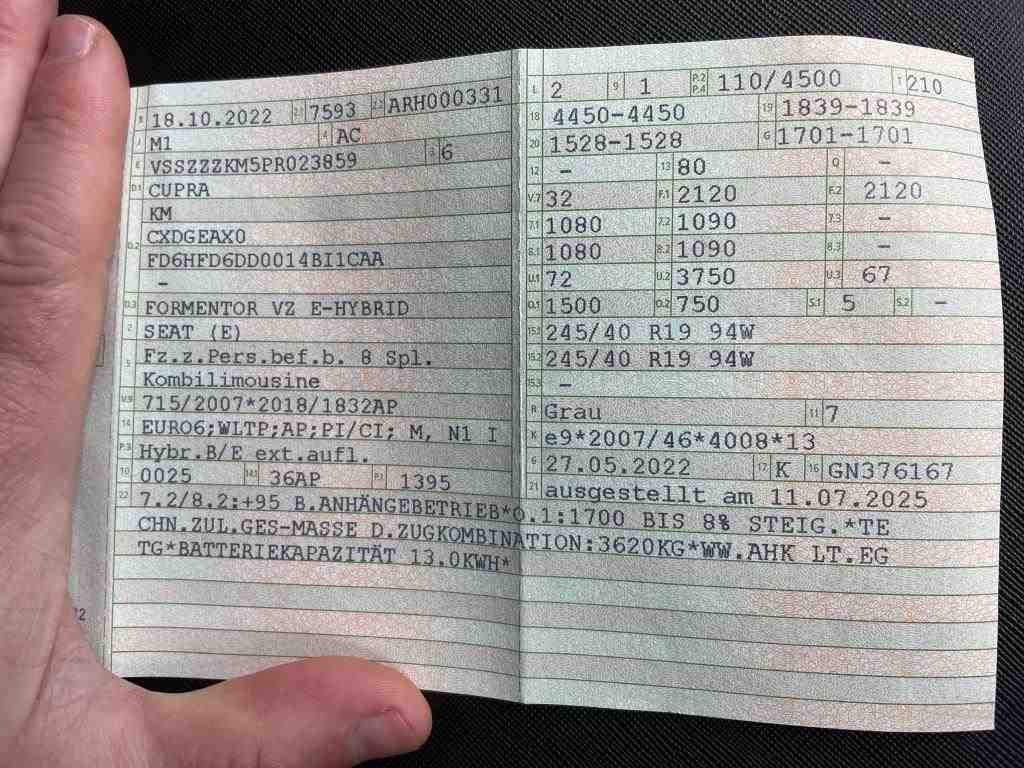 B 18.10.2022 2.1 7593 2.2 ARH000331
J M1 4 AC
E VSSZZZKM5PR023859 3 6
D.1 CUPRA
KM
D.2 CXDGEAX0
FD6HFD6DD0014BI1CAA
-
D.3 FORMENTOR VZ E-HYBRID
2 SEAT (E)
5 Fz.z.Pers.bef.b. 8 Spl.
Kombilimousine
V.9 715/2007*2018/1832AP
14 EURO6;WLTP;AP;PI/CI; M, N1 I
P.3 Hybr.B/E ext.aufl.
10 0025 14.1 36AP P.1 1395
L 2 9 1 P.2 P.4 110/4500 T 210
18 4450-4450 19 1839-1839
20 1528-1528 G 1701-1701
12 - 13 80 Q -
V.7 32 F.1 2120 F.2 2120
7.1 1080 7.2 1090 7.3 -
8.1 1080 8.2 1090 8.3 -
U.1 72 U.2 3750 U.3 67
O.1 1500 O.2 750 S.1 5 S.2 -
15.1 245/40 R19 94W
15.2 245/40 R19 94W
15.3 -
R Grau 11 7
K e9*2007/46*4008*13
6 27.05.2022 17 K 16 GN376167
21 ausgestellt am 11.07.2025
22 7.2/8.2:+95 B.ANHÄNGEBETRIEB*O.1:1700 BIS 8% STEIG.*TE
CHN.ZUL.GES-MASSE D.ZUGKOMBINATION:3620KG*WW.AHK LT.EG
TG*BATTERIEKAPAZITÄT 13.0KWH*